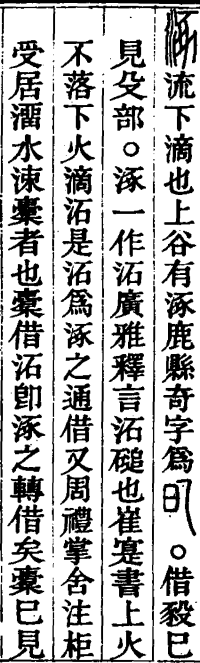 涿流下滴也上谷有涿鹿縣奇字爲𣌭。借豛已
見殳部。涿一作沰廣雅釋言沰磓也崔寔書上火
不落下火滴沰是沰爲涿之通借又周禮掌舍注柜
受居溜水涑橐者也橐借沰卽涿之轉借矣橐已見